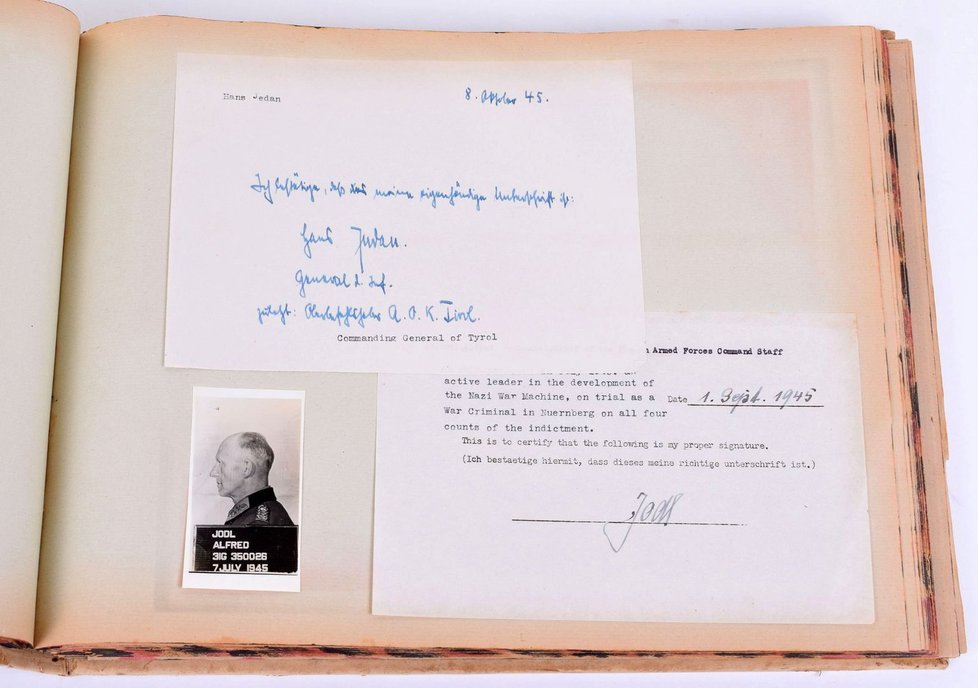 Hans Jedan
8. Oktober 45.
Ich bestätige, daß das meine eigenhändige Unterschrift ist:
Hans
General d. Inf.
zuletzt: Oberbefehlshaber A.O.K. Tirol.
Commanding General of Tyrol
Armed Forces Command Staff
active leader in the development of
the Nazi War Machine, on trial as a
Date 1. Sept. 1945
War Criminal in Nuernberg on all four
counts of the indictment.
This is to certify that the following is my proper signature.
(Ich bestaetige hiermit, dass dieses meine richtige unterschrift ist.)
Jodl
JODL
ALFRED
31G 350026
7 JULY 1945